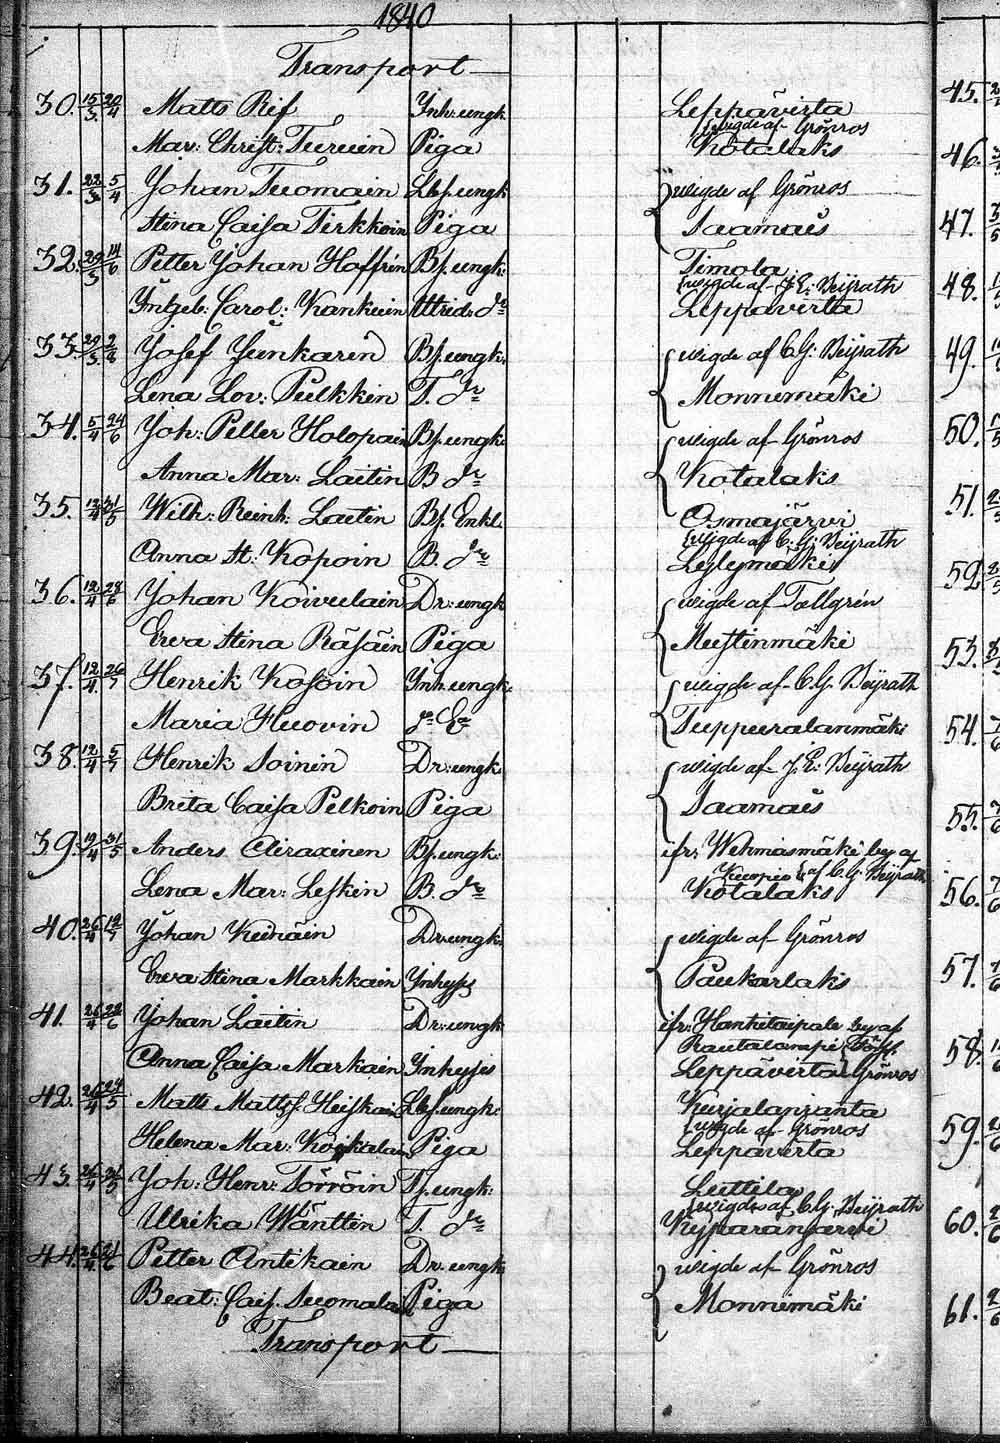 1840
Transport
30. 15/3 20/4 Matts Rif Ynh: ungk Leppävirta
wigde af Grönros
Mar: Christ: Turuin Piga Kotalaks
31. 22/3 5/4 Johan Tuomain Lbf. ungk wigde af Grönros
Stina Caisa Tirkkoin Piga Saamais
32. 29/3 14/6 Petter Johan Hoffrén Bf. ungk: Timola
wigde af J. E: Beijrath
Carol: Kankuin dr Leppävirta
33. 29/3 Josef Junkarin Bf. ungk: wigde af C. G: Beijrath
Lena Lov: Pulkkin T. dr Monnimäki
34. 5/4 24/6 Joh: Petter Holopain Bf. ungk: wigde af Grönros
Anna Mar: Laitin B dr Kotalaks
35. 12/4 31/5 Wilh: Reinh: Laitin Bf. Enkl. Osmajärvi
wigde af C. G: Beijrath
Anna St: Kopoin B. dr
36. 12/4 28/6 Johan Koivulain Dr: ungk wigde af Tallgrén
Ewa Stina Räsäin Piga Mustinmäki
37. 12/4 26/7 Henrik Kosoin Ynh: ungk: wigde af C. G. Beijrath
Maria Huovin Tuppuralanmäki
38. 12/4 5/7 Henrik Soinin Dr: ungk wigde af J. E: Beijrath
Brita Caisa Pelkoin Piga Saamais
39. 19/4 31/5 Anders Airaxinen Bf. ungk: ifr: Wehmasmäki by af
Kuopio af C. G. Beijrath
Lena Mar: Leskin B. dr Kotalaks
40. 26/4 12/7 Johan Keinäin Dr: ungk: wigde af Grönros
Ewa Stina Markkain Ynhyss Paukarlaks
41. 26/4 28/6 Johan Laitin Dr: ungk ifr: Hankitaipale by af
Rautalampi
Anna Caisa Markain Ynhyses Leppävirta Grönros
42. 26/4 24/5 Matts Mattsf. Heiskain Lbf. ungk: Kurjalanranta
wigde af Grönros
Helena Mar: Piga Leppävirta
43. 26/4 31/5 Joh: Henr: Torröin Tf. ungk: Luttila
wigde af C. G: Beijrath
Ulrika Wänttin T. dr
44. 26/4 21/6 Petter Antikain Dr: ungk wigde af Grönros
Beat: Cais. Suomalai Piga Monnimäki
Transport
45.
46.
47.
48.
49.
50.
51.
52
53.
54.
55.
56.
57.
58.
59.
60.
61.